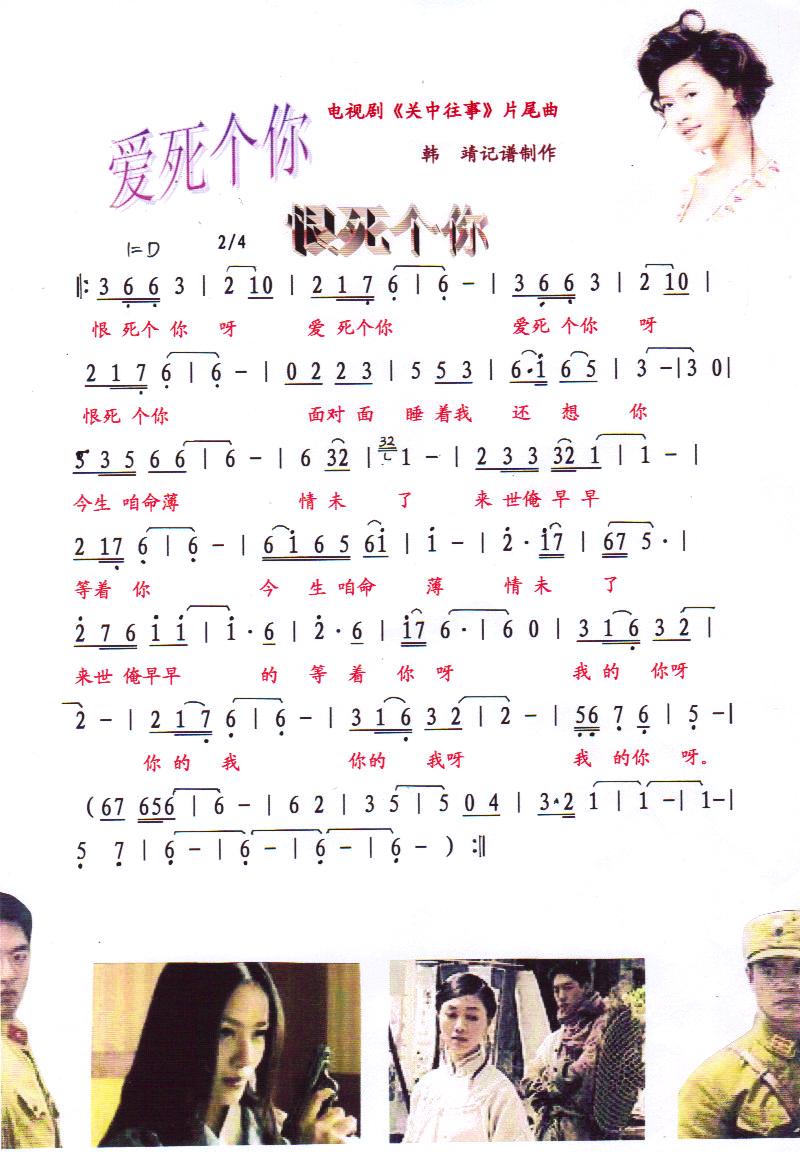 爱死个你
电视剧《关中往事》片尾曲
韩 靖记谱制作
恨死个你
1=D 2/4
‖: 3 6 6 3 | 2 10 | 2 1 7 6 | 6 - | 3 6 6 3 | 2 10 |
恨 死个 你 呀 爱 死个你 爱死 个你 呀
2 1 7 6 | 6 - | 0 2 2 3 | 5 5 3 | 6·i 6 5 | 3 - | 3 0 |
恨死 个你 面对 面 睡 着我 还 想 你
5 3 5 6 6 | 6 - | 6 32 | 32 1 - | 2 3 3 32 1 | 1 - |
今生 咱命薄 情 未 了 来 世俺 早 早
2 17 6 | 6 - | 6 i 6 5 6i | i - | 2· i7 | 67 5· |
等着 你 今 生 咱命 薄 情 未 了
2 7 6 i i | i· 6 | 2· 6 | i7 6· | 6 0 | 3 1 6 3 2 |
来世 俺早早 的 等 着 你 呀 我 的 你呀
2 - | 2 1 7 6 | 6 - | 3 1 6 3 2 | 2 - | 56 7 6 | 5 - |
你 的 我 你的 我呀 我 的你 呀。
( 67 656 | 6 - | 6 2 | 3 5 | 5 0 4 | 3·2 1 | 1 - | 1 - |
5 7 | 6 - | 6 - | 6 - | 6 - ) :‖